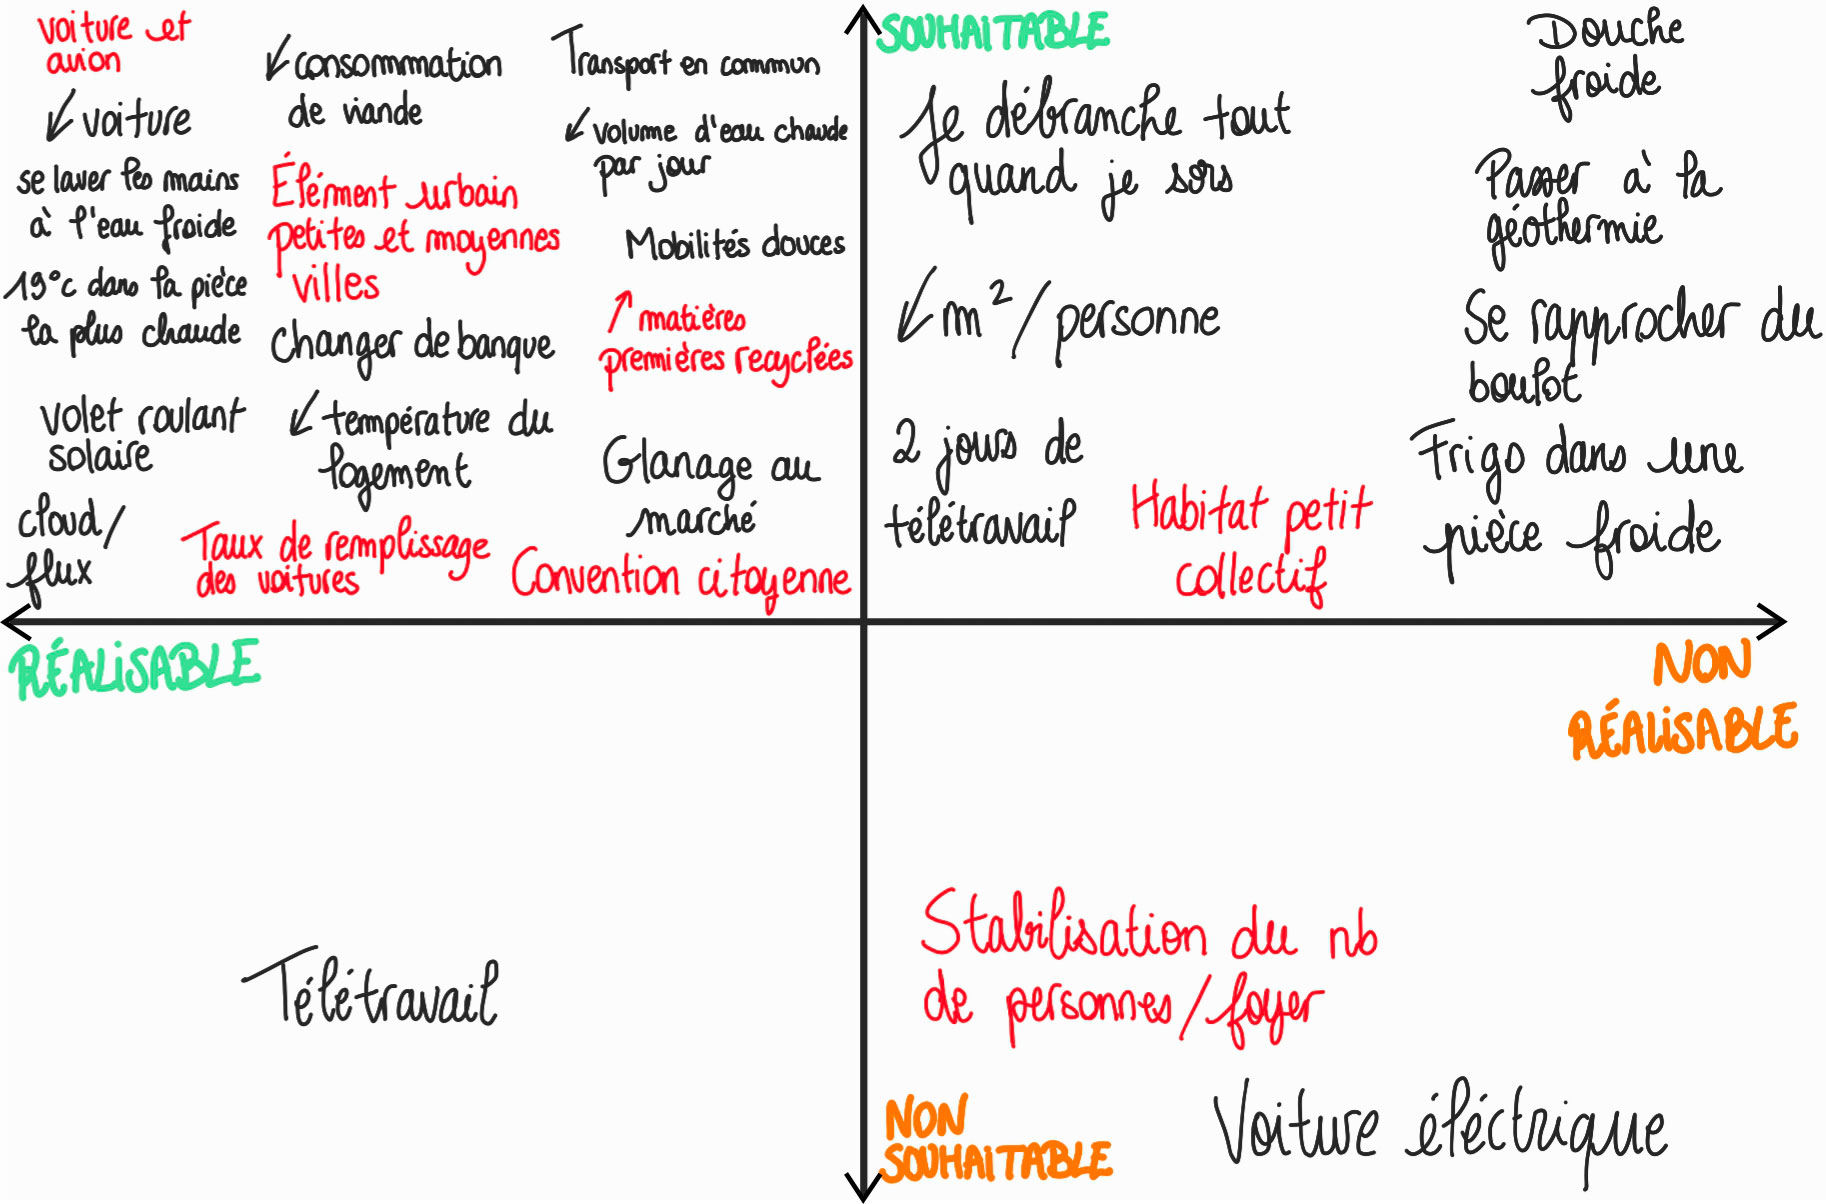 voiture et
avion
↙ voiture
se laver les mains
à l'eau froide
19°c dans la pièce
la plus chaude
volet roulant
solaire
cloud/
flux
↙ consommation
de viande
Élément urbain
petites et moyennes
villes
Changer de banque
↙ température du
logement
Taux de remplissage
des voitures
Transport en commun
↙ volume d'eau chaude
par jour
Mobilités douces
↗ matières
premières recyclées
Glanage au
marché
Convention citoyenne
SOUHAITABLE
Je débranche tout
quand je sors
↙ m²/personne
2 jours de
télétravail
Habitat petit
collectif
Douche
froide
Passer à la
géothermie
Se rapprocher du
boulot
Frigo dans une
pièce froide
RÉALISABLE
NON
RÉALISABLE
Télétravail
Stabilisation du nb
de personnes/foyer
Voiture éléctrique
NON
SOUHAITABLE